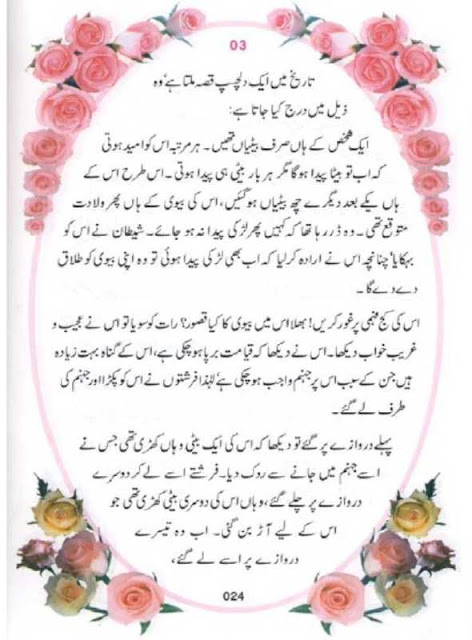 03
تاریخ میں ایک دلچسپ قصہ ملتا ہے، وہ
ذیل میں درج کیا جاتا ہے:
ایک شخص کے ہاں صرف بیٹیاں تھیں۔ ہر مرتبہ اس کو امید ہوتی
کہ اب تو بیٹا پیدا ہوگا مگر ہر بار بیٹی ہی پیدا ہوتی۔ اس طرح اس کے
ہاں یکے بعد دیگرے چھ بیٹیاں ہوگئیں، اس کی بیوی کے ہاں پھر ولادت
متوقع تھی۔ وہ ڈر رہا تھا کہ کہیں پھر لڑکی پیدا نہ ہو جائے۔ شیطان نے اس کو
بہکایا، چنانچہ اس نے ارادہ کرلیا کہ اب بھی لڑکی پیدا ہوئی تو وہ اپنی بیوی کو طلاق
دے دے گا۔
اس کی کج فہمی پر غور کریں! بھلا اس میں بیوی کا کیا قصور؟ رات کو سویا تو اس نے عجیب و
غریب خواب دیکھا۔ اس نے دیکھا کہ قیامت برپا ہوچکی ہے، اس کے گناہ بہت زیادہ
ہیں جن کے سبب اس پر جہنم واجب ہوچکی ہے، لہٰذا فرشتوں نے اس کو پکڑا اور جہنم کی
طرف لے گئے۔
پہلے دروازے پر گئے تو دیکھا کہ اس کی ایک بیٹی وہاں کھڑی تھی جس نے
اسے جہنم میں جانے سے روک دیا۔ فرشتے اسے لے کر دوسرے
دروازے پر چلے گئے، وہاں اس کی دوسری بیٹی کھڑی تھی جو
اس کے لیے آڑ بن گئی۔ اب وہ تیسرے
دروازے پر اسے لے گئے،
024